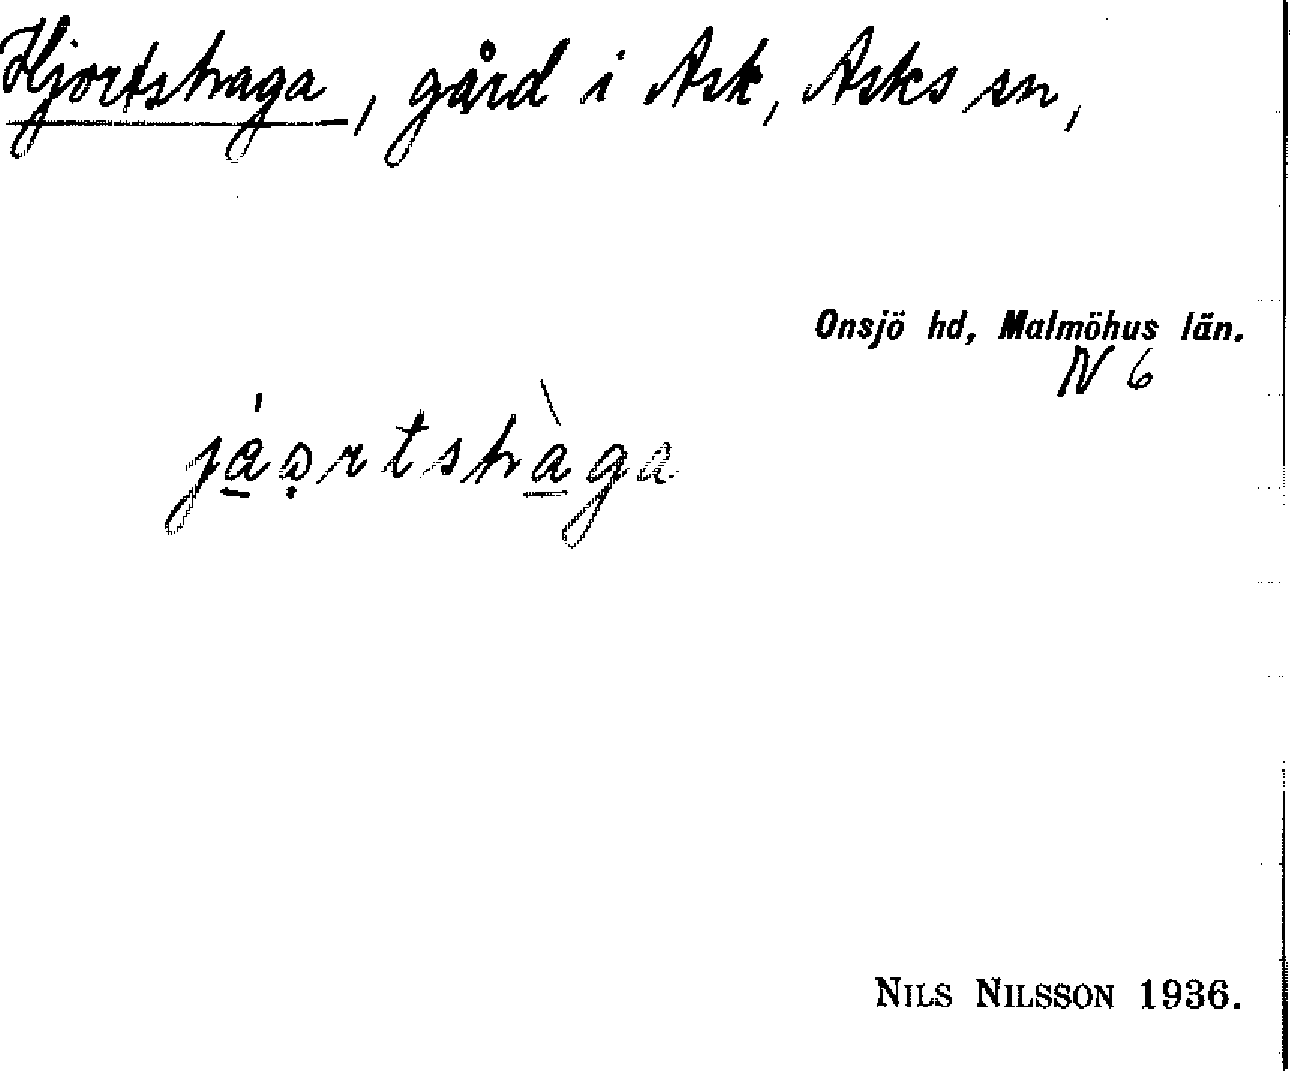 Hjortshaga, gård i Ask, Asks sn,
Onsjö hd, Malmöhus län.
N 6
NILS NILSSON 1936.